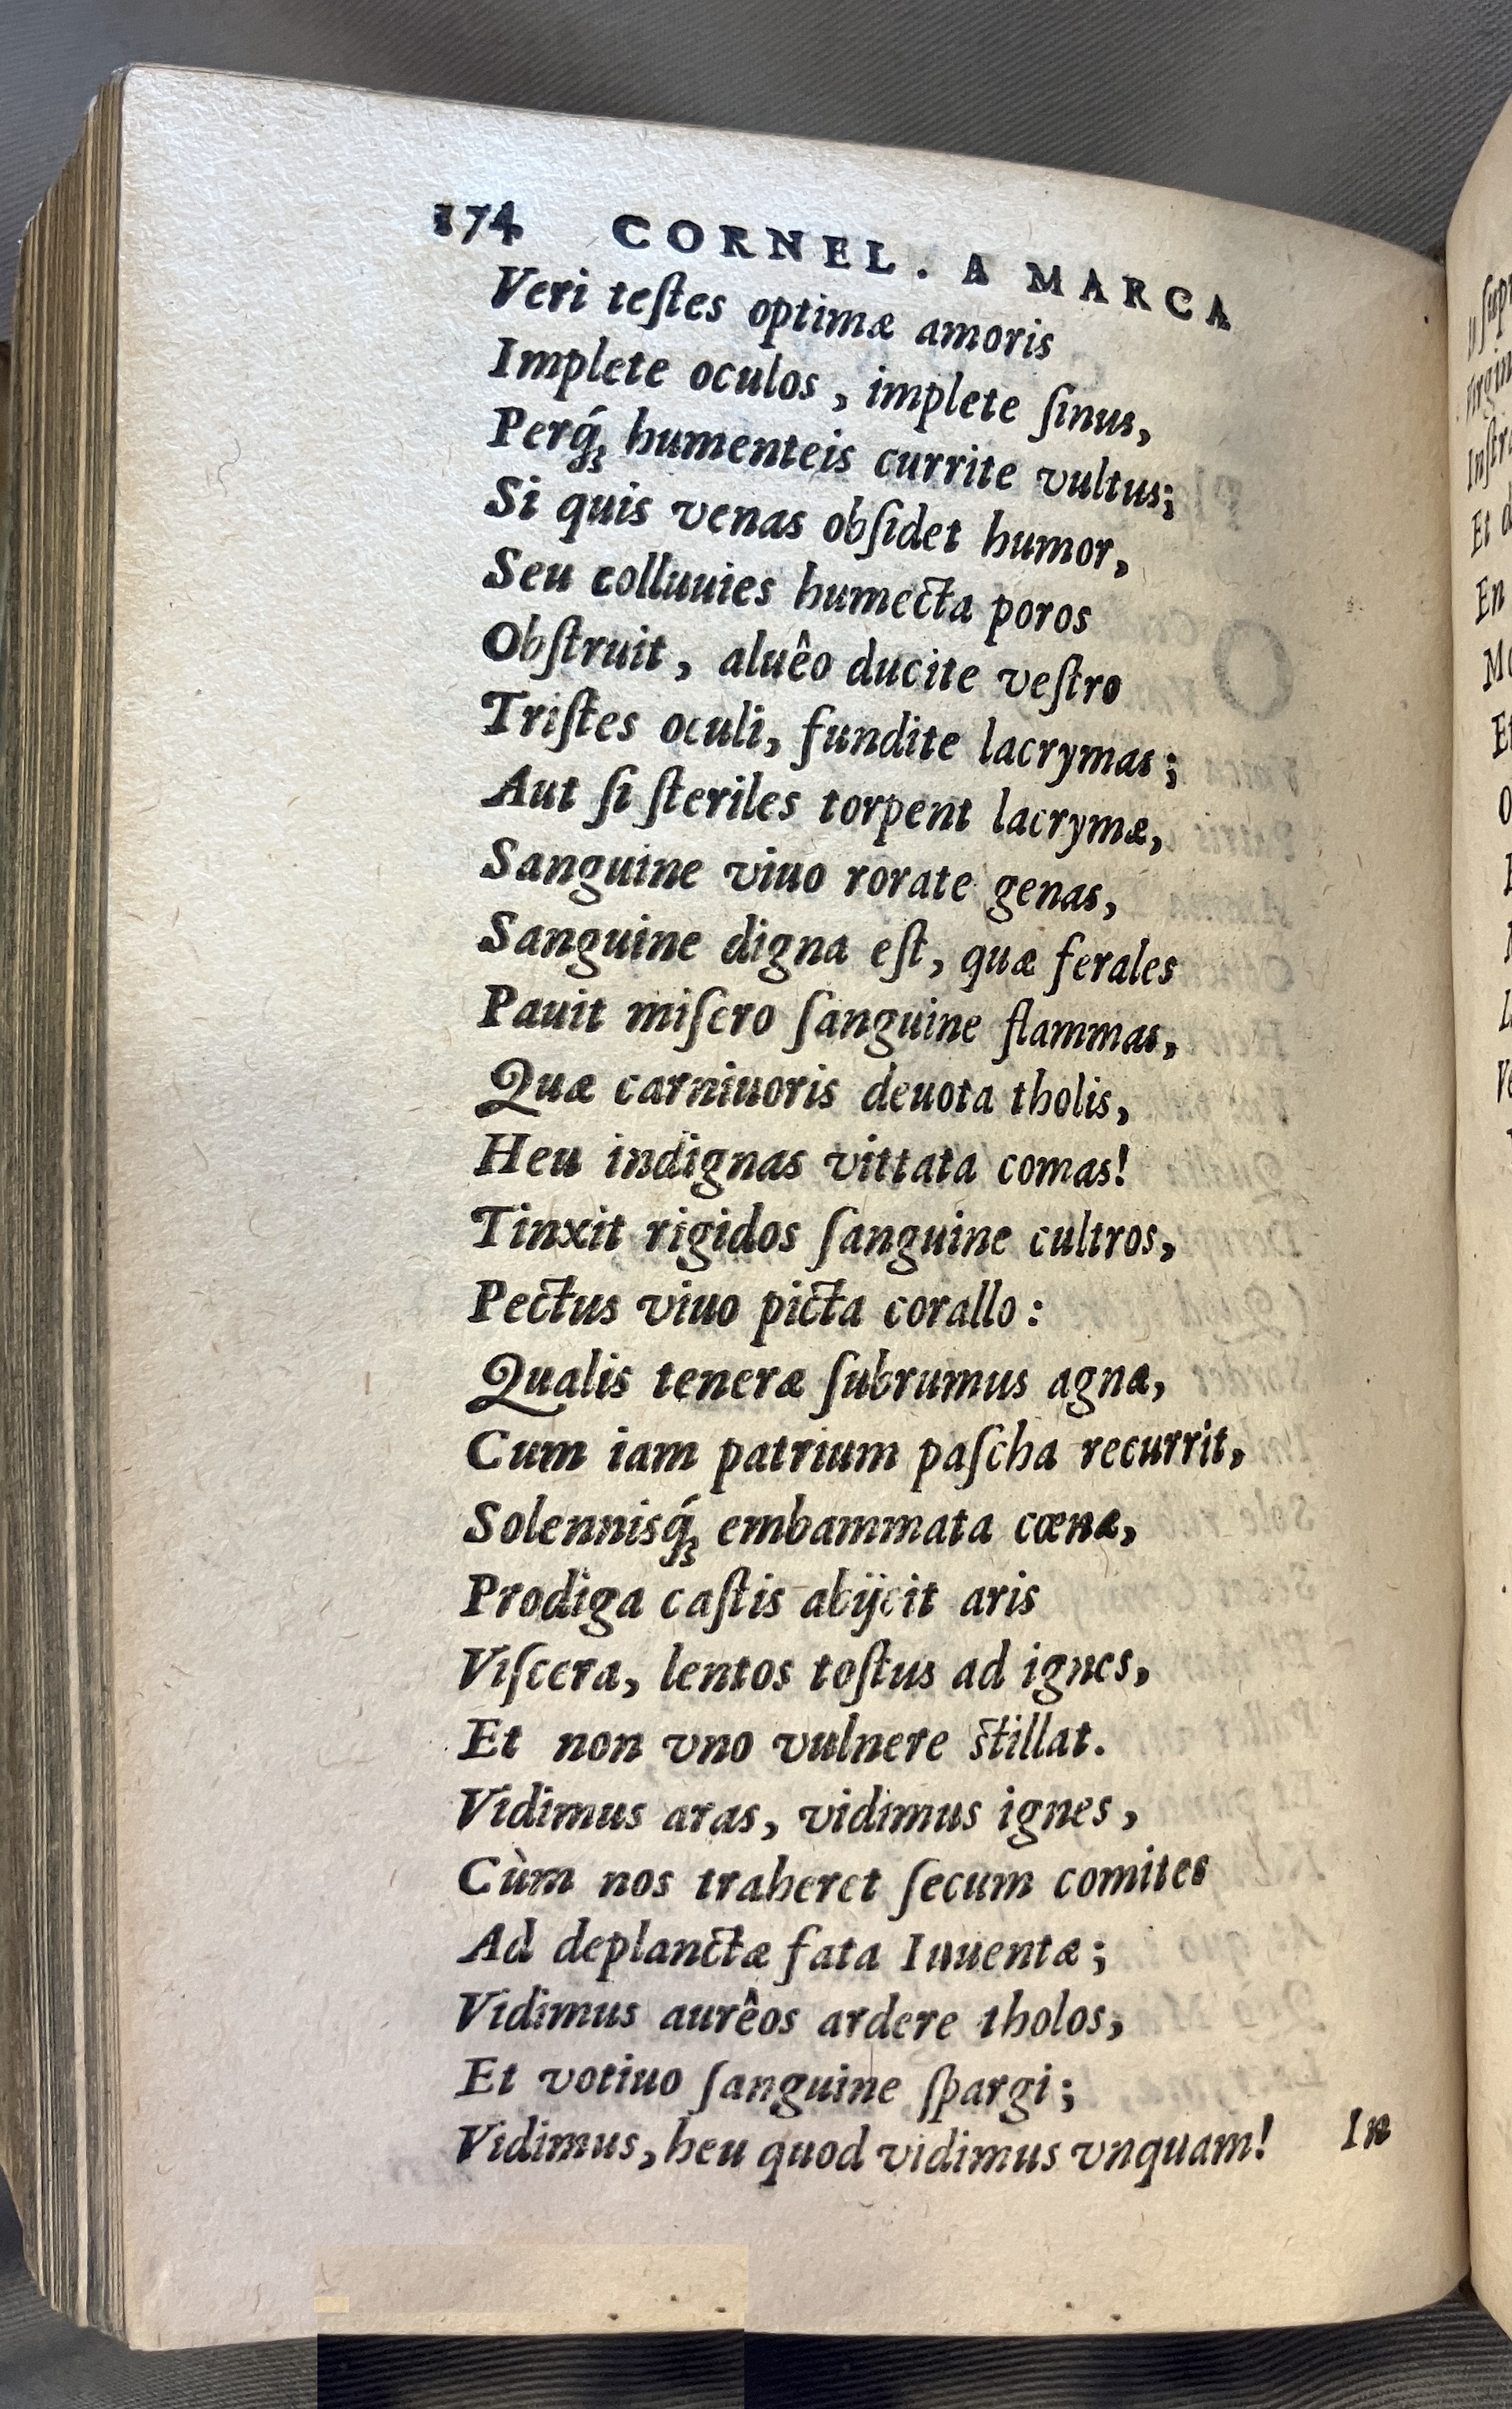 174 CORNEL. A MARCA
Veri teſtes optimæ amoris
Implete oculos, implete ſinus,
Perq́; humenteis currite vultus;
Si quis venas obſidet humor,
Seu colluuies humecta poros
Obſtruit, aluêo ducite veſtro
Triſtes oculi, fundite lacrymas;
Aut ſi ſteriles torpent lacrymæ,
Sanguine viuo rorate genas,
Sanguine digna eſt, quæ ferales
Pauit miſero ſanguine flammas,
Quæ carniuoris deuota tholis,
Heu indignas vittata comas!
Tinxit rigidos ſanguine cultros,
Pectus viuo picta corallo:
Qualis teneræ ſubrumus agnæ,
Cum iam patrium paſcha recurrit,
Solennisq́; embammata cœnæ,
Prodiga caſtis abijcit aris
Viſcera, lentos toſtus ad ignes,
Et non vno vulnere ſtillat.
Vidimus aras, vidimus ignes,
Cùm nos traheret ſecum comites
Ad deplanctæ fata Iuuentæ;
Vidimus aurêos ardere tholos,
Et votiuo ſanguine ſpargi;
Vidimus, heu quod vidimus vnquam!
In